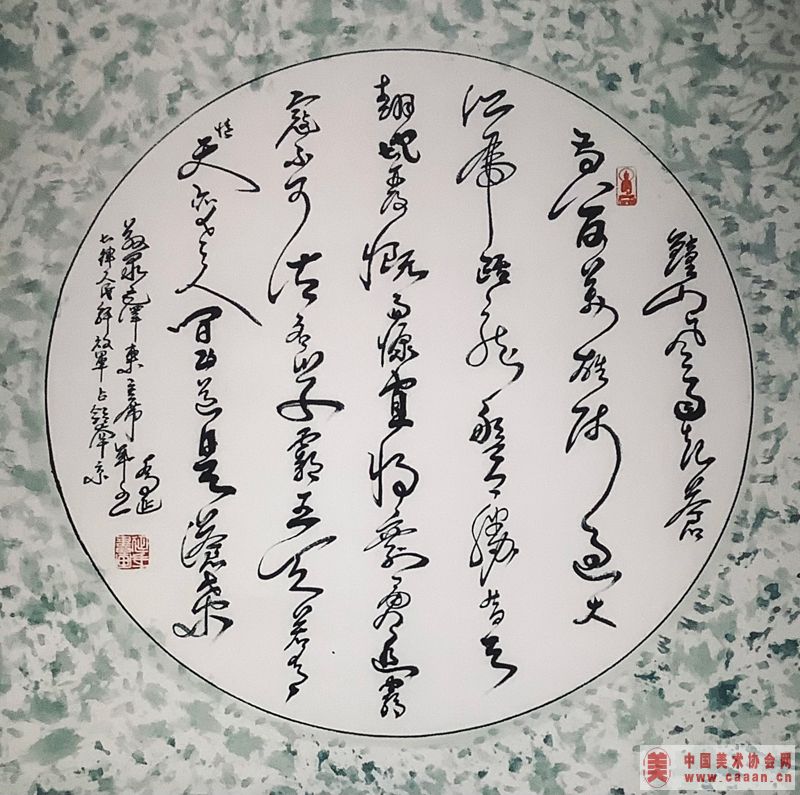 鐘山风雨起苍
黄百万雄师过大
江虎踞龙盘今胜昔天
翻地覆慨而慷宜将剩勇追窮
寇不可沽名学霸王天若有
情天亦老人间正道是滄桑
敬录毛泽东主席
七律人民解放军占领南京
美 中国美术协会网
www.caaan.cn